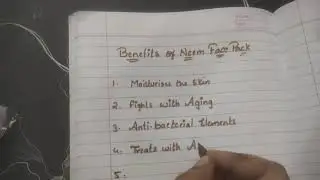 Benefits of Neem Face Pack
1. Moisturises the Skin
2. Fights with Aging
3. Anti-bacterial Elements
4. Treats with A
5.